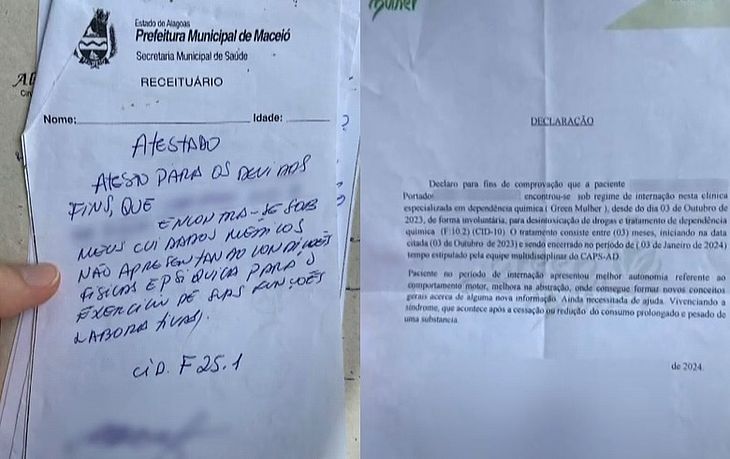 Estado de Alagoas
Prefeitura Municipal de Maceió
Secretaria Municipal de Saúde
RECEITUÁRIO
Nome: Idade:
ATESTADO
ATESTO PARA OS DEVIDOS
FINS, QUE
ENCONTRA-SE SOB
MEUS CUIDADOS MÉDICOS
NÃO APRESENTANDO CONDIÇÕES
FÍSICAS E PSIQUICA PARA O
EXERCÍCIO DE SUAS FUNÇÕES
LABORATIVAS.
CID. F 25.1
Mulher
DECLARAÇÃO
Declaro para fins de comprovação que a paciente
Portador encontrou-se sob regime de internação nesta clínica
especializada em dependência química ( Green Mulher ), desde do dia 03 de Outubro de
2023, de forma involuntária, para desintoxicação de drogas e tratamento de dependência
química (F:10.2) (CID-10). O tratamento consiste entre (03) meses, iniciando na data
citada (03 de Outubro de 2023) e sendo encerrado no período de ( 03 de Janeiro de 2024)
tempo estipulado pela equipe multidisciplinar do CAPS-AD.
Paciente no período de internação apresentou melhor autonomia referente ao
comportamento motor, melhora na abstração, onde consegue formar novos conceitos
gerais acerca de alguma nova informação. Ainda necessitada de ajuda. Vivenciando a
síndrome, que acontece após a cessação ou redução do consumo prolongado e pesado de
uma substancia.
de 2024.